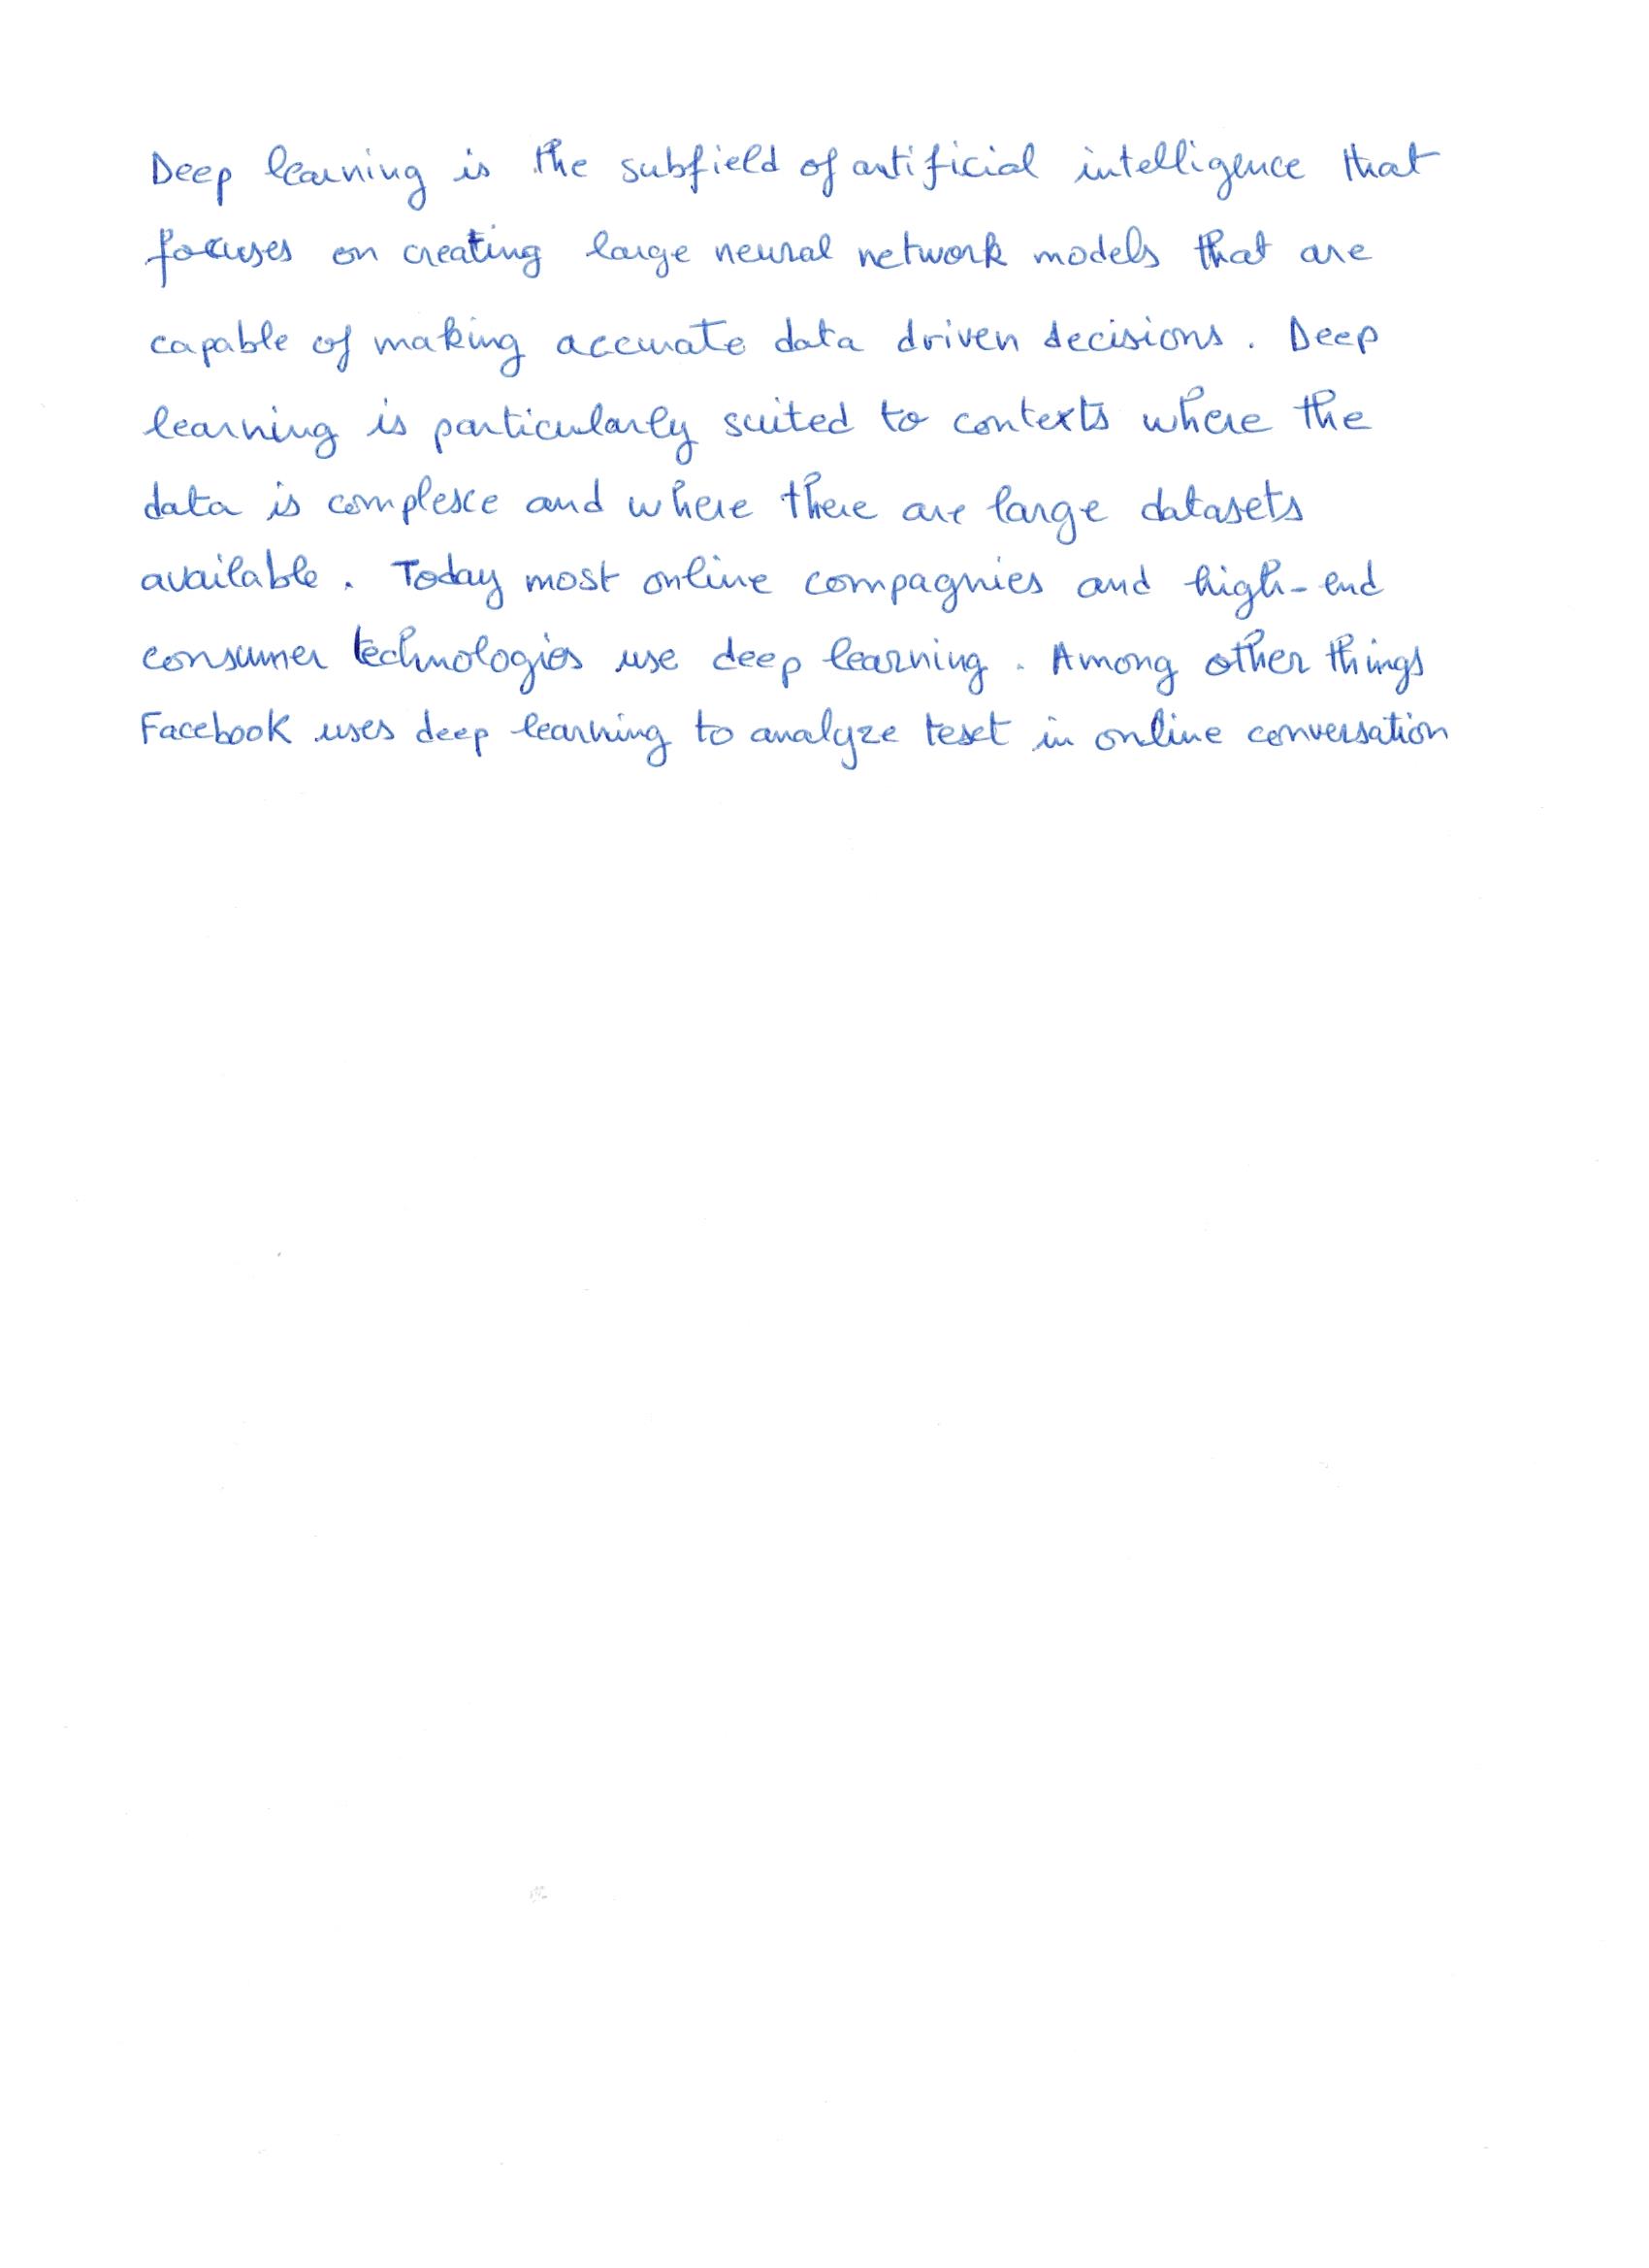 Deep learning is the subfield of artificial intelligence that
focuses on creating large neural network models that are
capable of making accurate data driven decisions. Deep
learning is particularly suited to contexts where the
data is complexe and where there are large datasets
available. Today most online compagnies and high-end
consumer technologies use deep learning. Among other things
Facebook uses deep learning to analyze text in online conversation